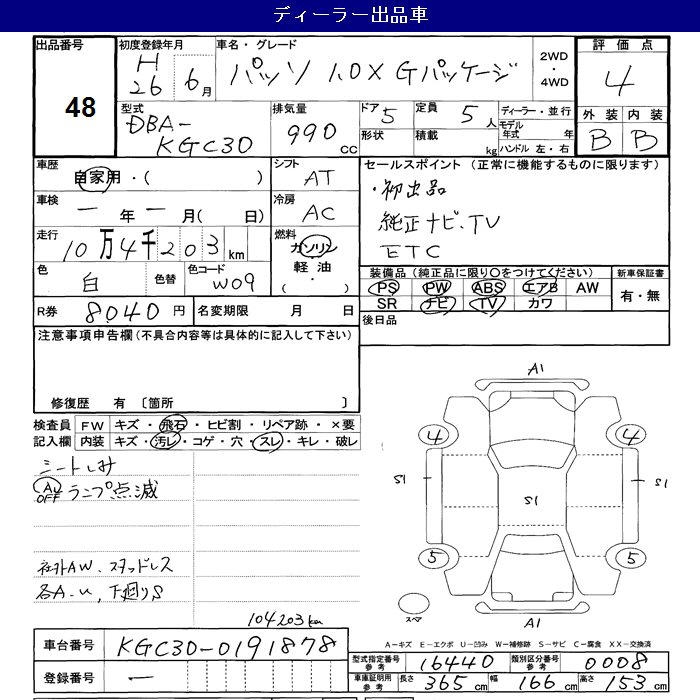 ディーラー出品車
出品番号 48
初度登録年月 H26年6月
車名・グレード パッソ 1.0X Gパッケージ
2WD・4WD
評価点 4
外装 B 内装 B
型式 DBA-KGC30
排気量 990cc
ドア 5 形状
定員 5人 積載 kg
ディーラー・並行
モデル年式 年
ハンドル 左・右
車歴 自家用・( )
シフト AT
セールスポイント (正常に機能するものに限ります)
・初出品
純正ナビ、TV
ETC
車検 一年一月( 日)
冷房 AC
走行 10万4千203km
燃料 ガソリン・軽油・( )
色 白 色替 色コード W09
装備品(純正品に限り〇をつけてください) 新車保証書
PS PW ABS エアB AW 有・無
SR ナビ TV カワ
R券 8040円 名変期限 月 日
後日品
注意事項申告欄(不具合内容等は具体的に記入して下さい)
修復歴 有 〔箇所 〕
検査員記入欄 FW キズ・飛石・ヒビ割・リペア跡・×要
内装 キズ・汚レ・コゲ・穴・スレ・キレ・破レ
シートしみ
OFFランプ点滅
社外AW、スタッドレス
各A-U、下廻りS
A1
4 4
S1 S1 S1
5 5
スペア
A1
104203km
A-キズ E-エクボ U-凹み W-補修跡 S-サビ C-腐食 XX-交換済
車台番号 KGC30-0191878
型式指定番号 参考 16440 類別区分番号 参考 0008
登録番号 一
車庫証明用 参考 長さ 365cm 幅 166cm 高さ 153cm